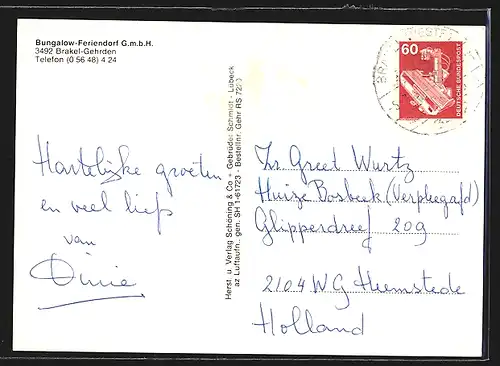 Bungalow-Feriendorf G.m.b.H.
3492 Brakel-Gehrden
Telefon (0 56 48) 4 24
Hartelijke groeten
en veel liefs
van
Dinie
Herst. u. Verlag Schöning & Co + Gebrüder Schmidt - Lübeck
az Luftaufn. gen. SH 1-61723 - Bestellnr. Gehr RS
60
DEUTSCHE BUNDESPOST
Greet Wurtz
Huize Bosbeek (Verpleegafd)
Glipperdreef 209
2104 WG Heemstede
Holland